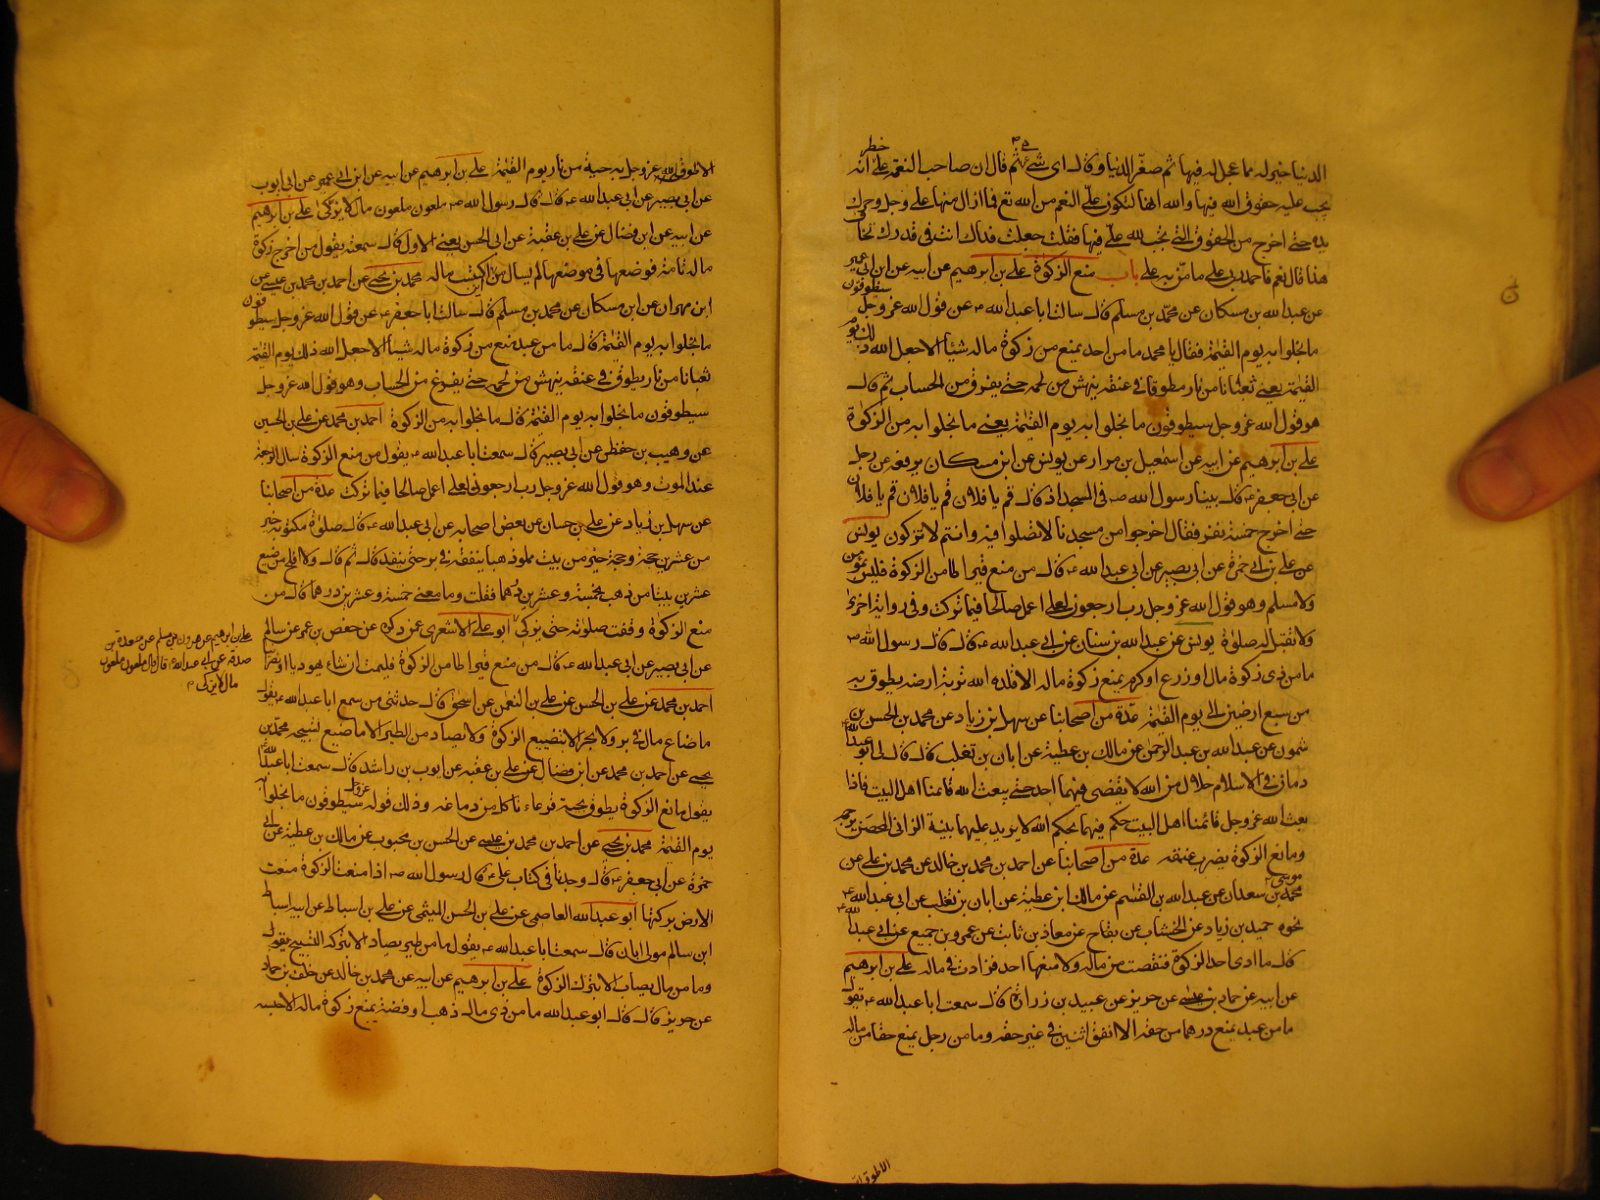 الدنيا خير له مما عجل له فيها ثم صغر الدنيا وقال اى شئ هى ثم قال ان صاحب النعمة على خطر انه
يجب عليه حقوق الله فيها والله انها لتكون على النعم من الله تع فما ازال منها على وجل وحرك
يده حتى اخرج من الحقوق التى تجب لله على فيها فقلت جعلت فداك انت فى قدرك تخاف
هذا قال نعم فاحمد ربى على ما من به على باب منع الزكوة على بن ابرهيم عن ابيه عن ابن ابى عمير
عن عبدالله بن مسكان عن محمد بن مسلم قال سالت ابا عبدالله ع عن قول الله عز وجل سيطوقون
ما بخلوا به يوم القيمة فقال يا محمد ما من احد يمنع من زكوة ماله شيئا الا جعل الله ذلك يوم
القيمة يعنى ثعبانا من نار مطوقا فى عنقه ينهش من لحمه حتى يفرق من الحساب ثم قال
هو قول الله عز وجل سيطوقون ما بخلوا به يوم القيمة يعنى ما بخلوا به من الزكوة
على بن ابرهيم عن ابيه عن اسمعيل بن مرار عن يونس عن ابن مسكان يرفعه عن رجل
عن ابى جعفر ع قال بينا رسول الله ص فى المسجد اذ قال قم يا فلان قم يا فلان قم يا فلان
حتى اخرج خمسة نفر فقال اخرجوا من مسجدنا لا تصلوا فيه وانتم لا تزكون يونس
عن على بن ابى حمزة عن ابى بصير عن ابى عبدالله ع قال من منع قيراطا من الزكوة فليس بمؤمن
ولا مسلم وهو قول الله عز وجل رب ارجعون لعلى اعمل صالحا فيما تركت وفى رواية اخرى
ولا تقبل له صلوة يونس عن عبدالله بن سنان عن ابى عبدالله ع قال قال رسول الله ص
ما من ذى زكوة مال او زرع او كرم يمنع زكوة ماله الا قلده الله تربة ارضه يطوق به
من سبع ارضين الى يوم القيمة عدة من اصحابنا عن سهل بن زياد عن محمد بن الحسن بن
شمون عن عبدالله بن عبدالرحمن عن مالك بن عطية عن ابان بن تغلب قال قال لى ابو عبدالله
دمان فى الاسلام حلال من الله لا يقضى فيهما احد حتى يبعث الله قائمنا اهل البيت فاذا
بعث الله عز وجل قائمنا اهل البيت حكم فيهما بحكم الله لا يريد عليهما بينة الزانى المحصن يرجمه
ومانع الزكوة يضرب عنقه عدة من اصحابنا عن احمد بن محمد بن خالد عن محمد بن على عن
موسى
محمد بن سعدان عن عبدالله بن القسم عن مالك ابن عطية عن ابان بن تغلب عن ابى عبدالله ع
نحوه حميد بن زياد عن الخشاب عن بقاح عن معاذ بن ثابت عن عمرو بن جميع عن ابى عبدالله ع
قال ما ادى احد الزكوة فنقصت من ماله ولا منعها احد فزادت فى ماله على بن ابرهيم
عن ابيه عن حماد بن عيسى عن حريز عن عبيد بن زرارة قال سمعت ابا عبدالله ع يقول
ما من عبد يمنع درهما من حقه الا انفق اثنين فى غير حقه وما من رجل يمنع حقا من ماله
الا طوقه الله
الا طوقه الله عز وجل به حية من نار يوم القيمة على بن ابرهيم عن ابيه عن ابن ابى عمير عن ابى ايوب
عن ابى بصير عن ابى عبدالله ع قال قال رسول الله ص ملعون ملعون مال لا يزكى على بن ابرهيم
عن ابيه عن ابن فضال عن على بن عقبة عن ابى الحسن يعنى الاول قال سمعته يقول من اخرج زكوة
ماله تامة فوضعها فى موضعها لم يسال من اين اكتسب ماله محمد بن يحيى عن احمد بن محمد بن عيسى عن
ابن مهران عن ابن مسكان عن محمد بن مسلم قال سالت ابا جعفر ع عن قول الله عز وجل سيطوقون
ما بخلوا به يوم القيمة قال ما من عبد منع من زكوة ماله شيئا الا جعل الله ذلك يوم القيمة
ثعبانا من نار يطوق فى عنقه ينهش من لحمه حتى يفرغ من الحساب وهو قول الله عز وجل
سيطوقون ما بخلوا به يوم القيمة قال ما بخلوا به من الزكوة احمد بن محمد عن على بن الحسين
عن وهيب بن حفص عن ابى بصير قال سمعت ابا عبدالله ع يقول من منع الزكوة سال الرجعة
عند الموت وهو قول الله عز وجل رب ارجعون لعلى اعمل صالحا فيما تركت عدة من اصحابنا
عن سهل بن زياد عن على بن حسان عن بعض اصحابه عن ابى عبدالله ع قال صلوة مكتوبة خير
من عشرين حجة وحجة خير من بيت مملو ذهبا ينفقه فى بر حتى ينفد قال ثم قال ولا افلح من ضيع
عشرين بيتا من ذهب بخمسة وعشرين درهما فقلت وما معنى خمسة وعشرين درهما قال من
منع الزكوة وقفت صلوته حتى يزكى ابو على الاشعرى عن ذكره عن حفص بن عمر عن سالم
عن ابى بصير عن ابى عبدالله ع قال من منع قيراطا من الزكوة فليمت ان شاء يهوديا او نصرانيا
احمد بن محمد عن على بن الحسن عن على بن النعمن عن اسحق قال حدثنى من سمع ابا عبدالله ع يقول
ما ضاع مال فى بر ولا بحر الا بتضييع الزكوة ولا يصاد من الطير الا ما ضيع تسبيحه محمد بن
يحيى عن احمد بن محمد عن ابن فضال عن على بن عقبة عن ايوب بن راشد قال سمعت ابا عبدالله
يقول مانع الزكوة يطوق بحية قرعاء تاكل من دماغه وذلك قوله عز وجل سيطوقون ما بخلوا به
يوم القيمة محمد بن يحيى عن احمد بن محمد بن عيسى عن الحسن بن محبوب عن مالك بن عطية عن ابى
حمزة عن ابى جعفر ع قال وجدنا فى كتاب على ع قال رسول الله ص اذا منعت الزكوة منعت
الارض بركتها ابو عبدالله العاصمى عن على بن الحسن الميثمى عن على بن اسباط عن ابيه اسباط
ابن سالم مولى ابان قال سمعت ابا عبدالله ع يقول ما من طير يصاد الا بتركه التسبيح يقول
وما من مال يصاب الا بترك الزكوة على بن ابرهيم عن ابيه عن محمد بن خالد عن خلف بن حماد
عن حريز قال قال ابو عبدالله ما من ذى مال ذهب او فضة يمنع زكوة ماله الا حبسه
على بن ابرهيم عن هرون بن مسلم عن مسعدة بن
صدقة عن ابى عبدالله ع قال قال ملعون ملعون
مال لا يزكى